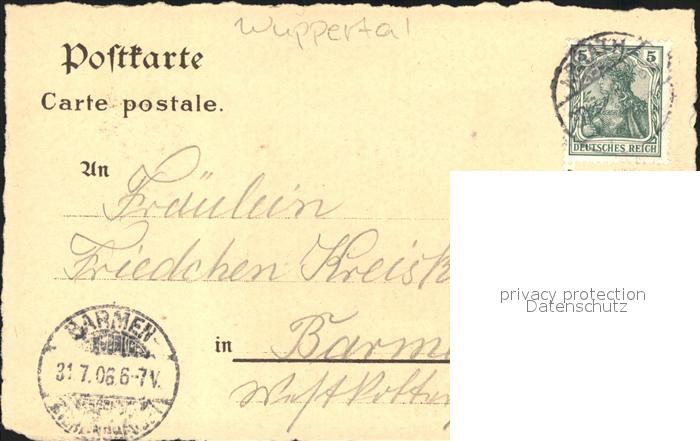 Wuppertal
Postkarte
Carte postale.
5 5
DEUTSCHES REICH
An
Fräulein
Friedchen Kreisk
privacy protection
Datenschutz
in Barm
Westkotter
BARMEN
31.7.06.6-7V.